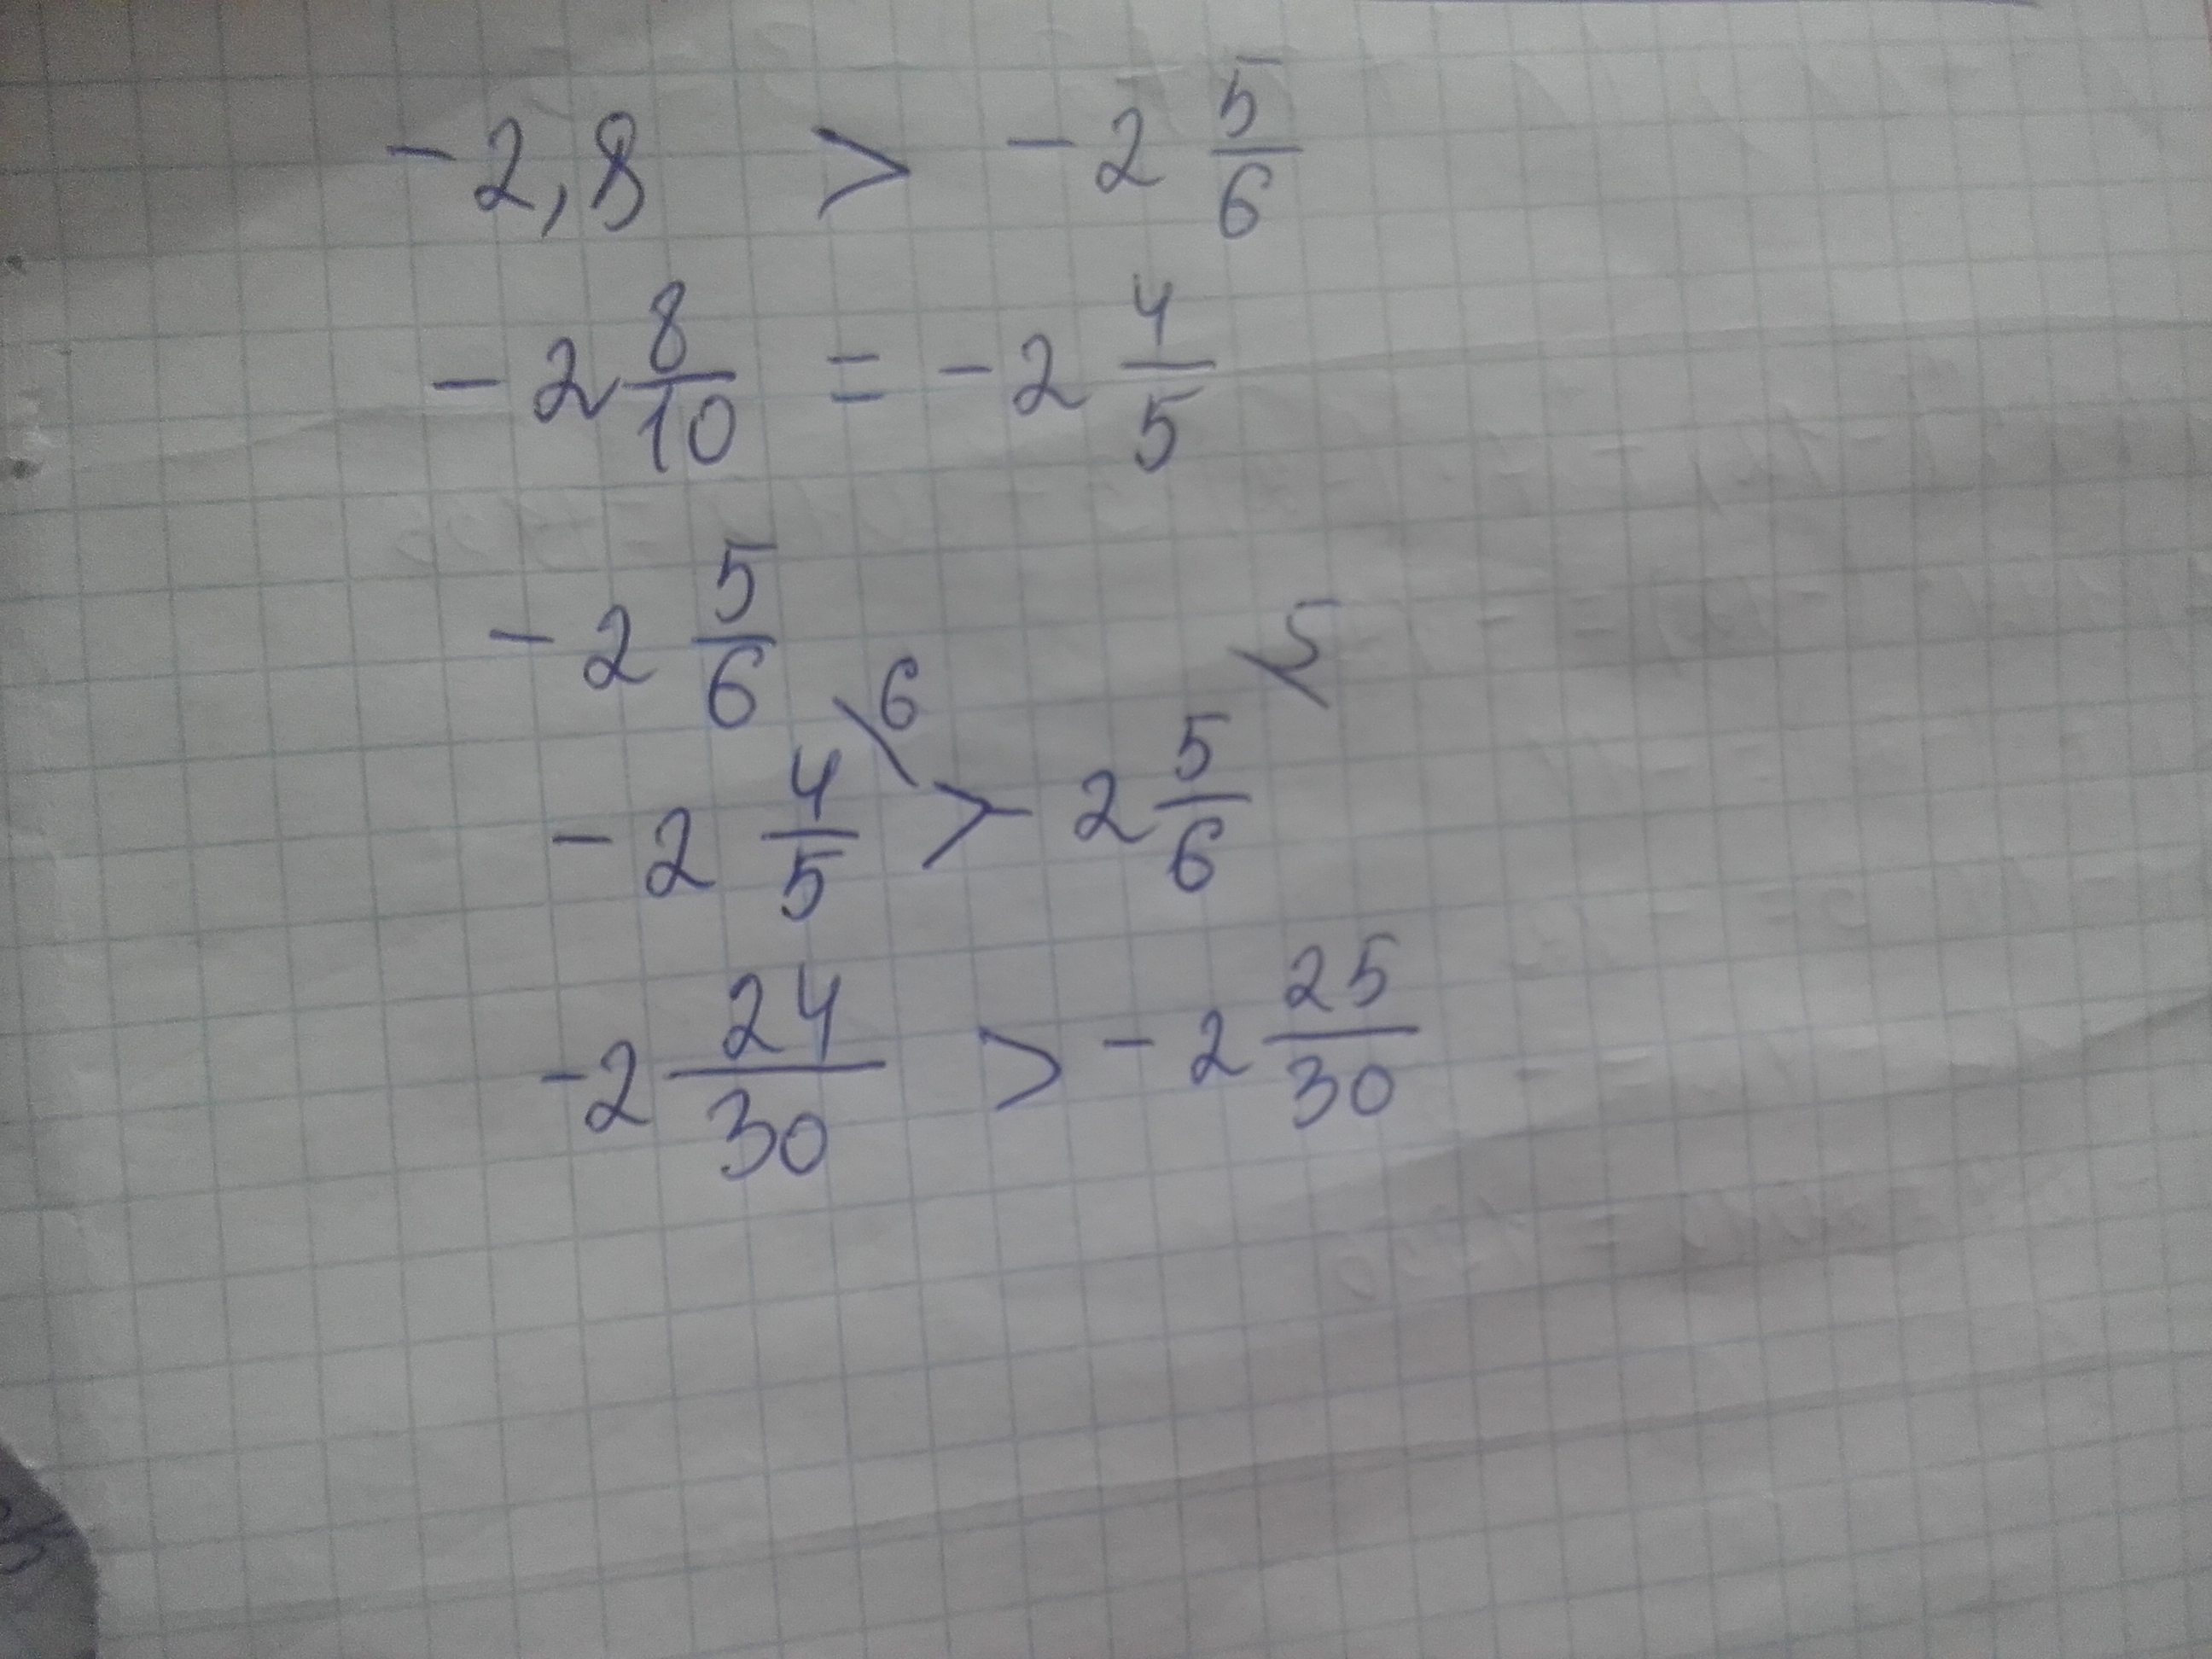 -2,8 > -2 5/6
-2 8/10 = -2 4/5
-2 5/6
-2 4/5 \6 > -2 5/6 \5
-2 24/30 > -2 25/30